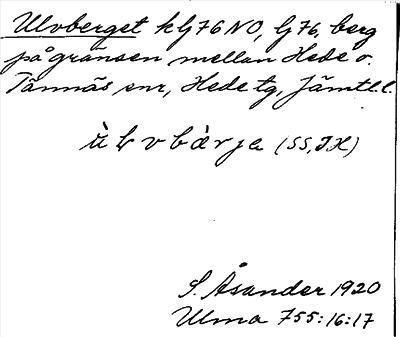 Ulvberget k G76 NO, G76, berg
på gränsen mellan Hede o.
Tännäs snr, Hede tg, Jämtl. l.
ù L v b à r j a (SS, JH)
S. Åsander 1920
Ulma 755:16:17